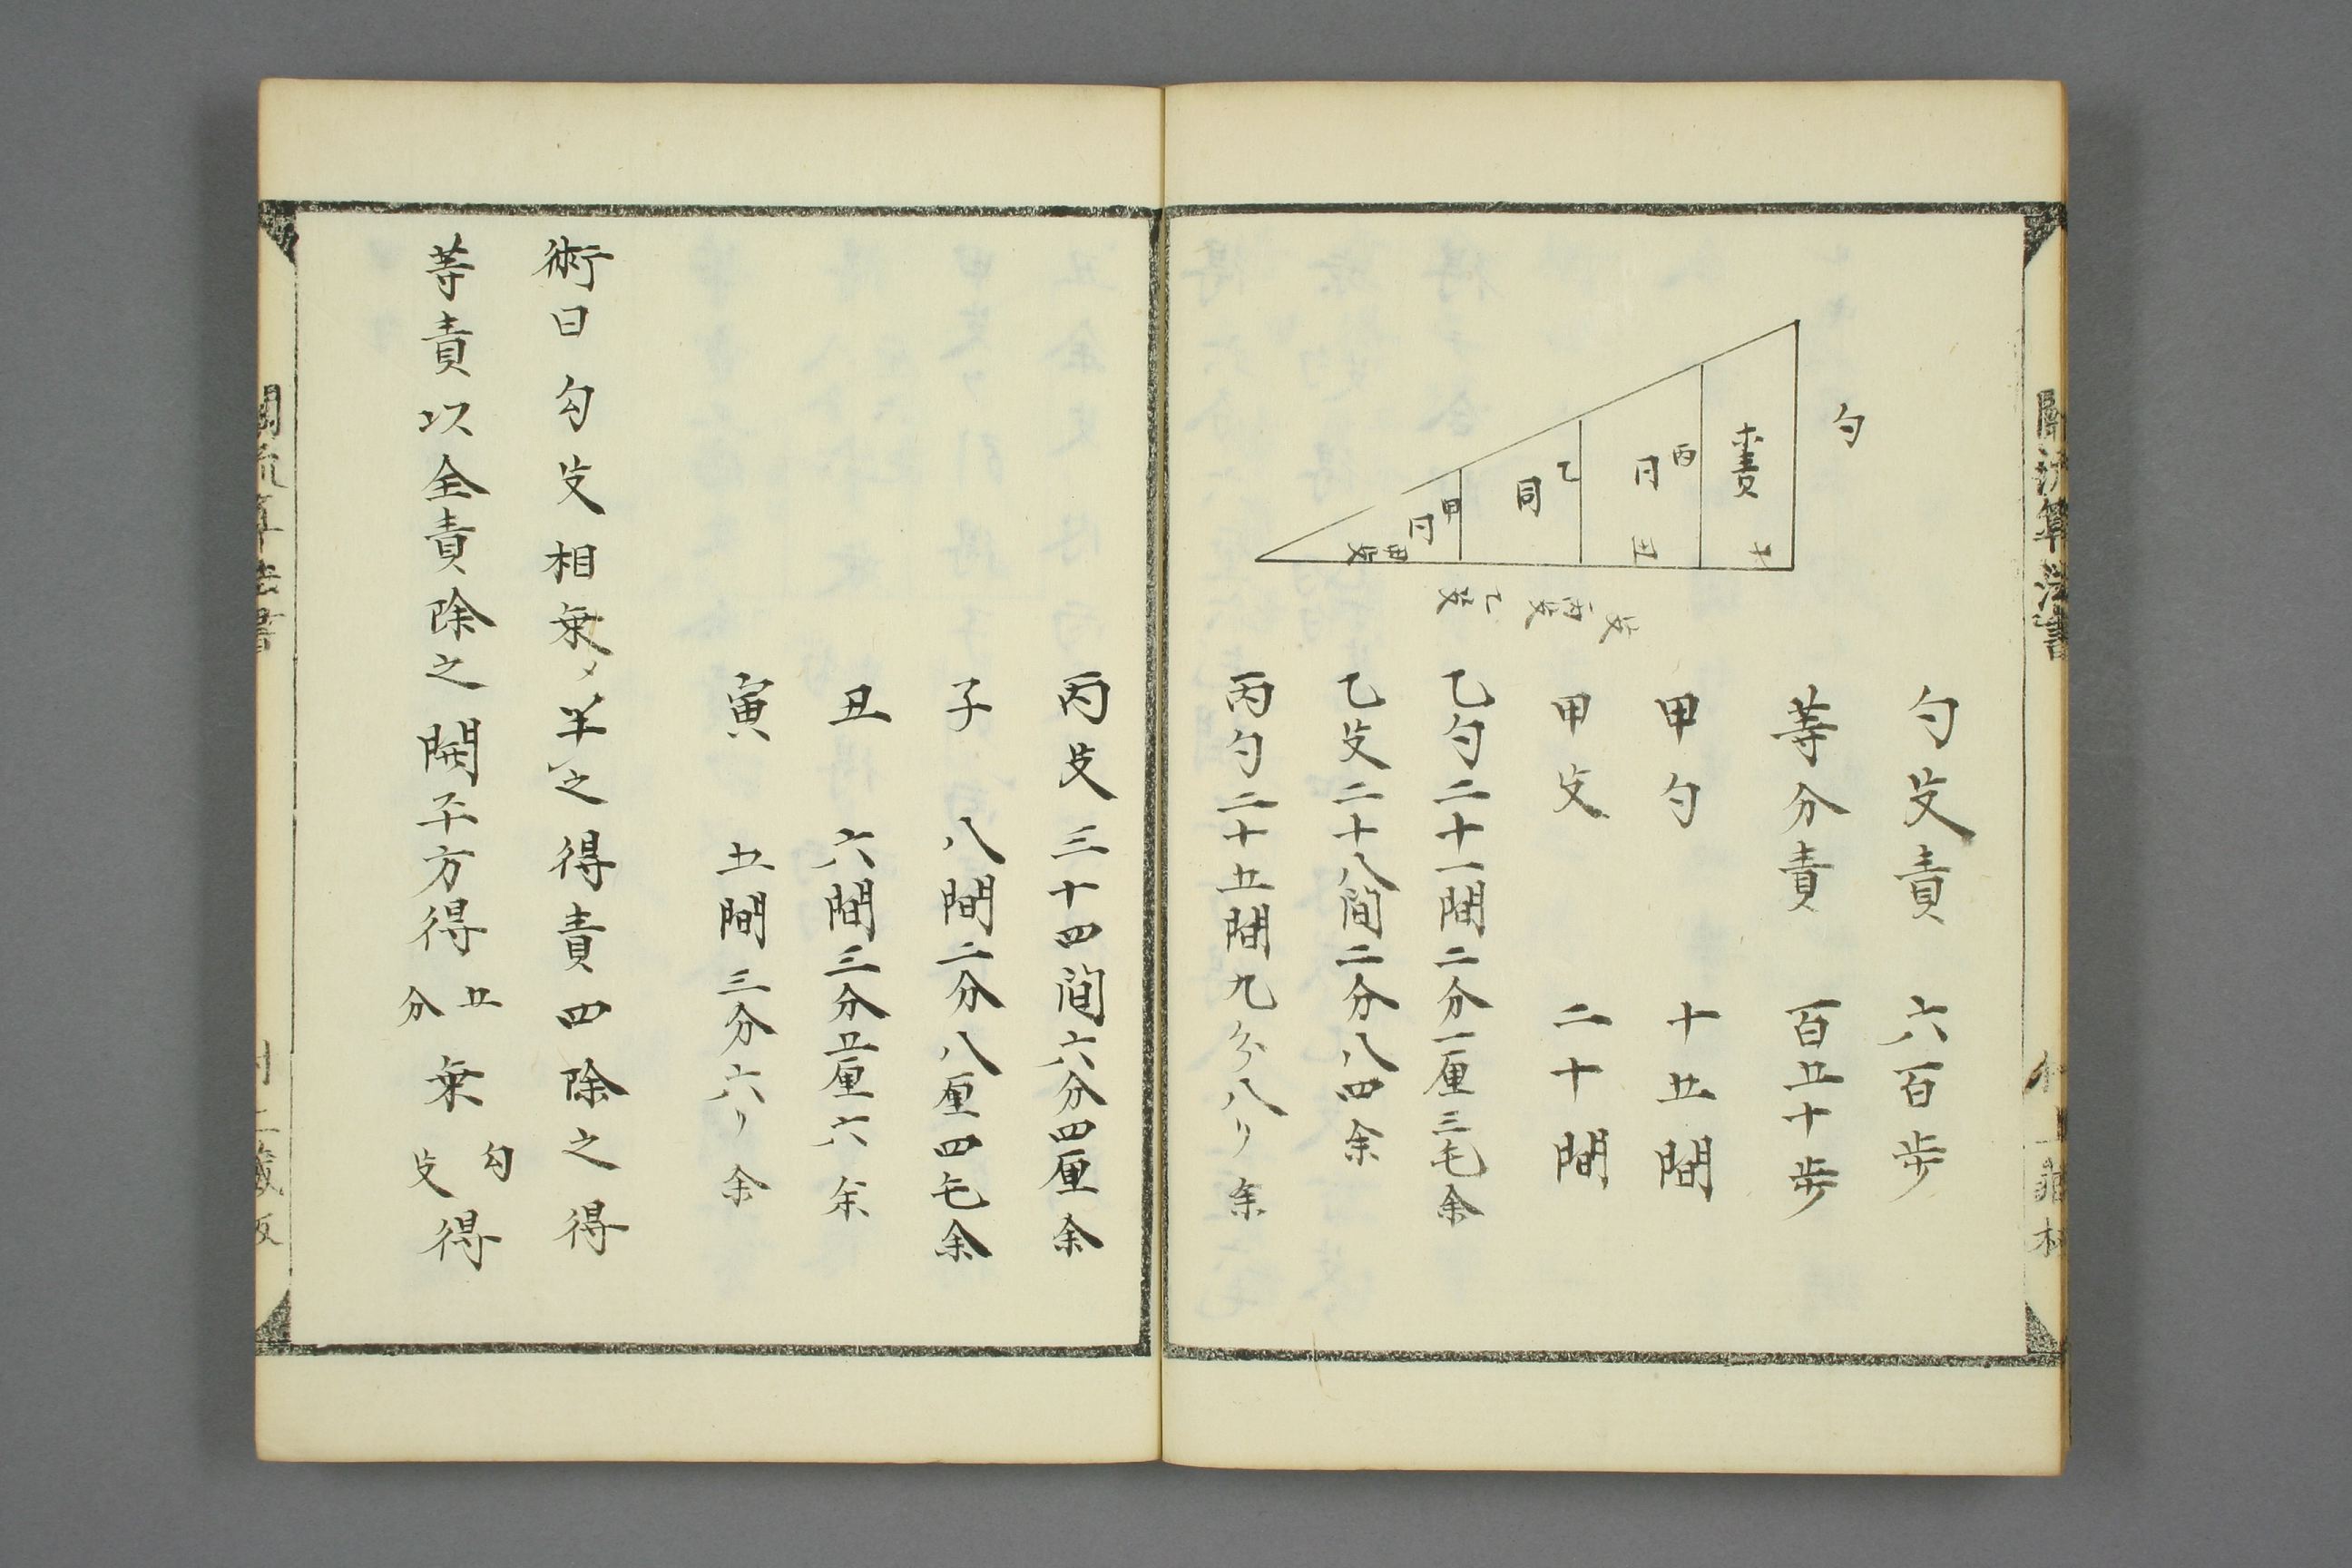 勺
朩責
子
丙
円
丑
乙
同
甲
円
甲攴
乙攴
丙攴
攴
勺攴責　六百歩
等分責　百五十歩
甲勺　十五間
甲攴　二十間
乙勺二十一間二分一厘三毛余
乙攴二十八間二分八四余
丙勺二十五間九分八リ余
丙攴三十四間六分四厘余
子　八間二分八厘四毛余
丑　六間三分五厘六余
寅　五間三分六リ余
術曰勾攴相乗〆半之得責四除之得
等責以全責除之開平方得五分乗勾攴得